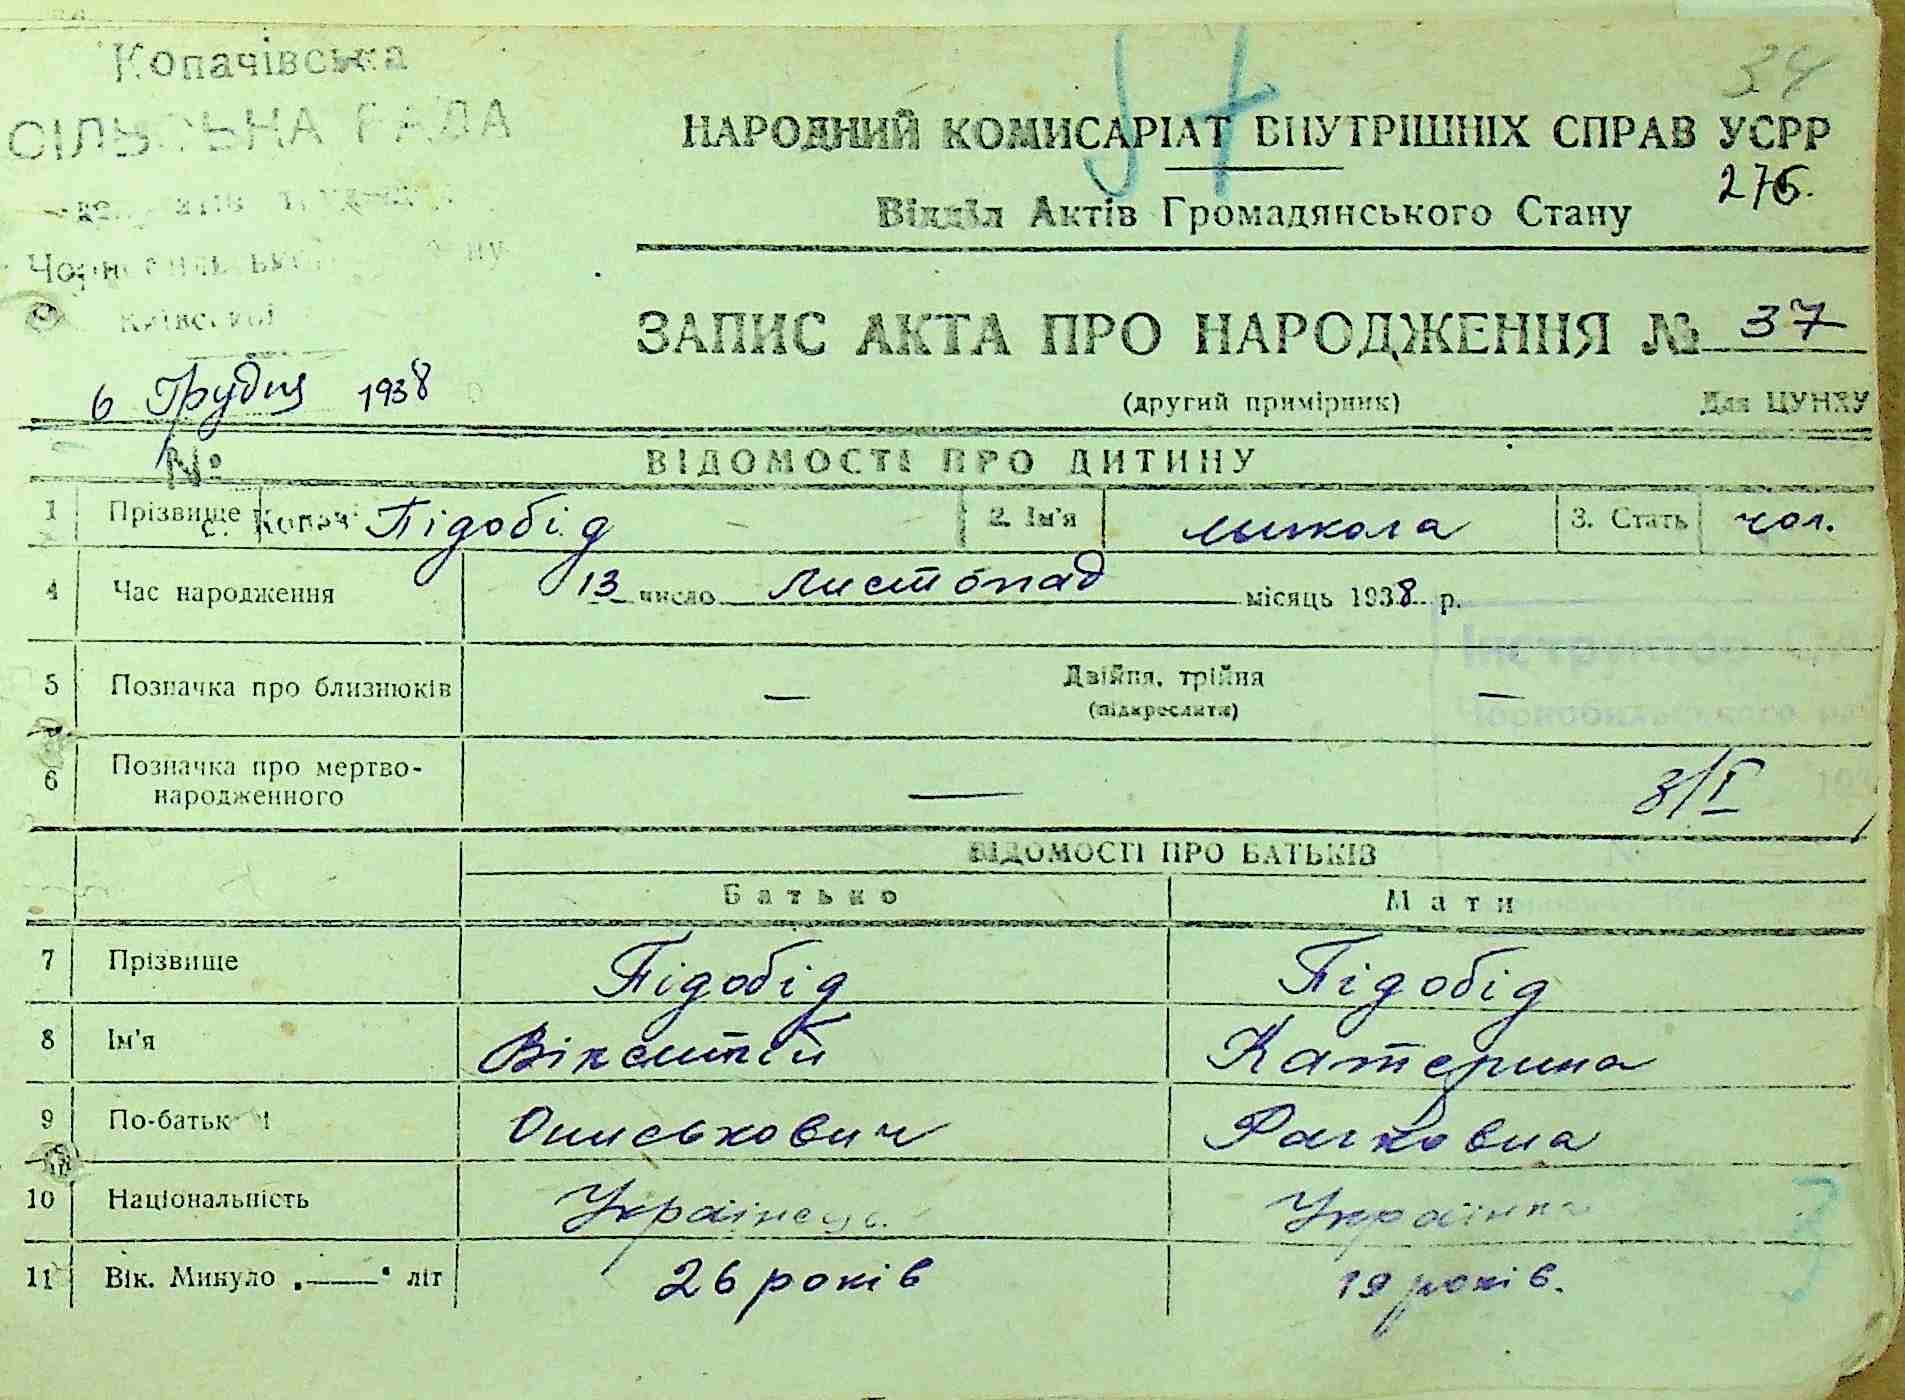 Копачівська
СІЛЬСЬКА РАДА
Київської
34
НАРОДНИЙ КОМИСАРІАТ ВНУТРІШНІХ СПРАВ УСРР
276.
Відділ Актів Громадянського Стану
ЗАПИС АКТА ПРО НАРОДЖЕННЯ № 37
6 Грудня 1938
(другий примірник) Для ЦУНХУ
№
ВІДОМОСТІ ПРО ДИТИНУ
1 Прізвище с. Копачі Підобід 2. Ім'я Микола 3. Стать чол.
4 Час народження 13 число Листопад місяць 1938 р.
Інструктор
5 Позначка про близнюків — Двійня, трійня —
(підкреслити)
6 Позначка про мертво-
народженного — 8/I
ВІДОМОСТІ ПРО БАТЬКІВ
Батько Мати
7 Прізвище Підобід Підобід
8 Ім'я Катерина
9 По-батькові
10 Національність Українець Українка
11 Вік. Минуло „—" літ 26 років 19 років.